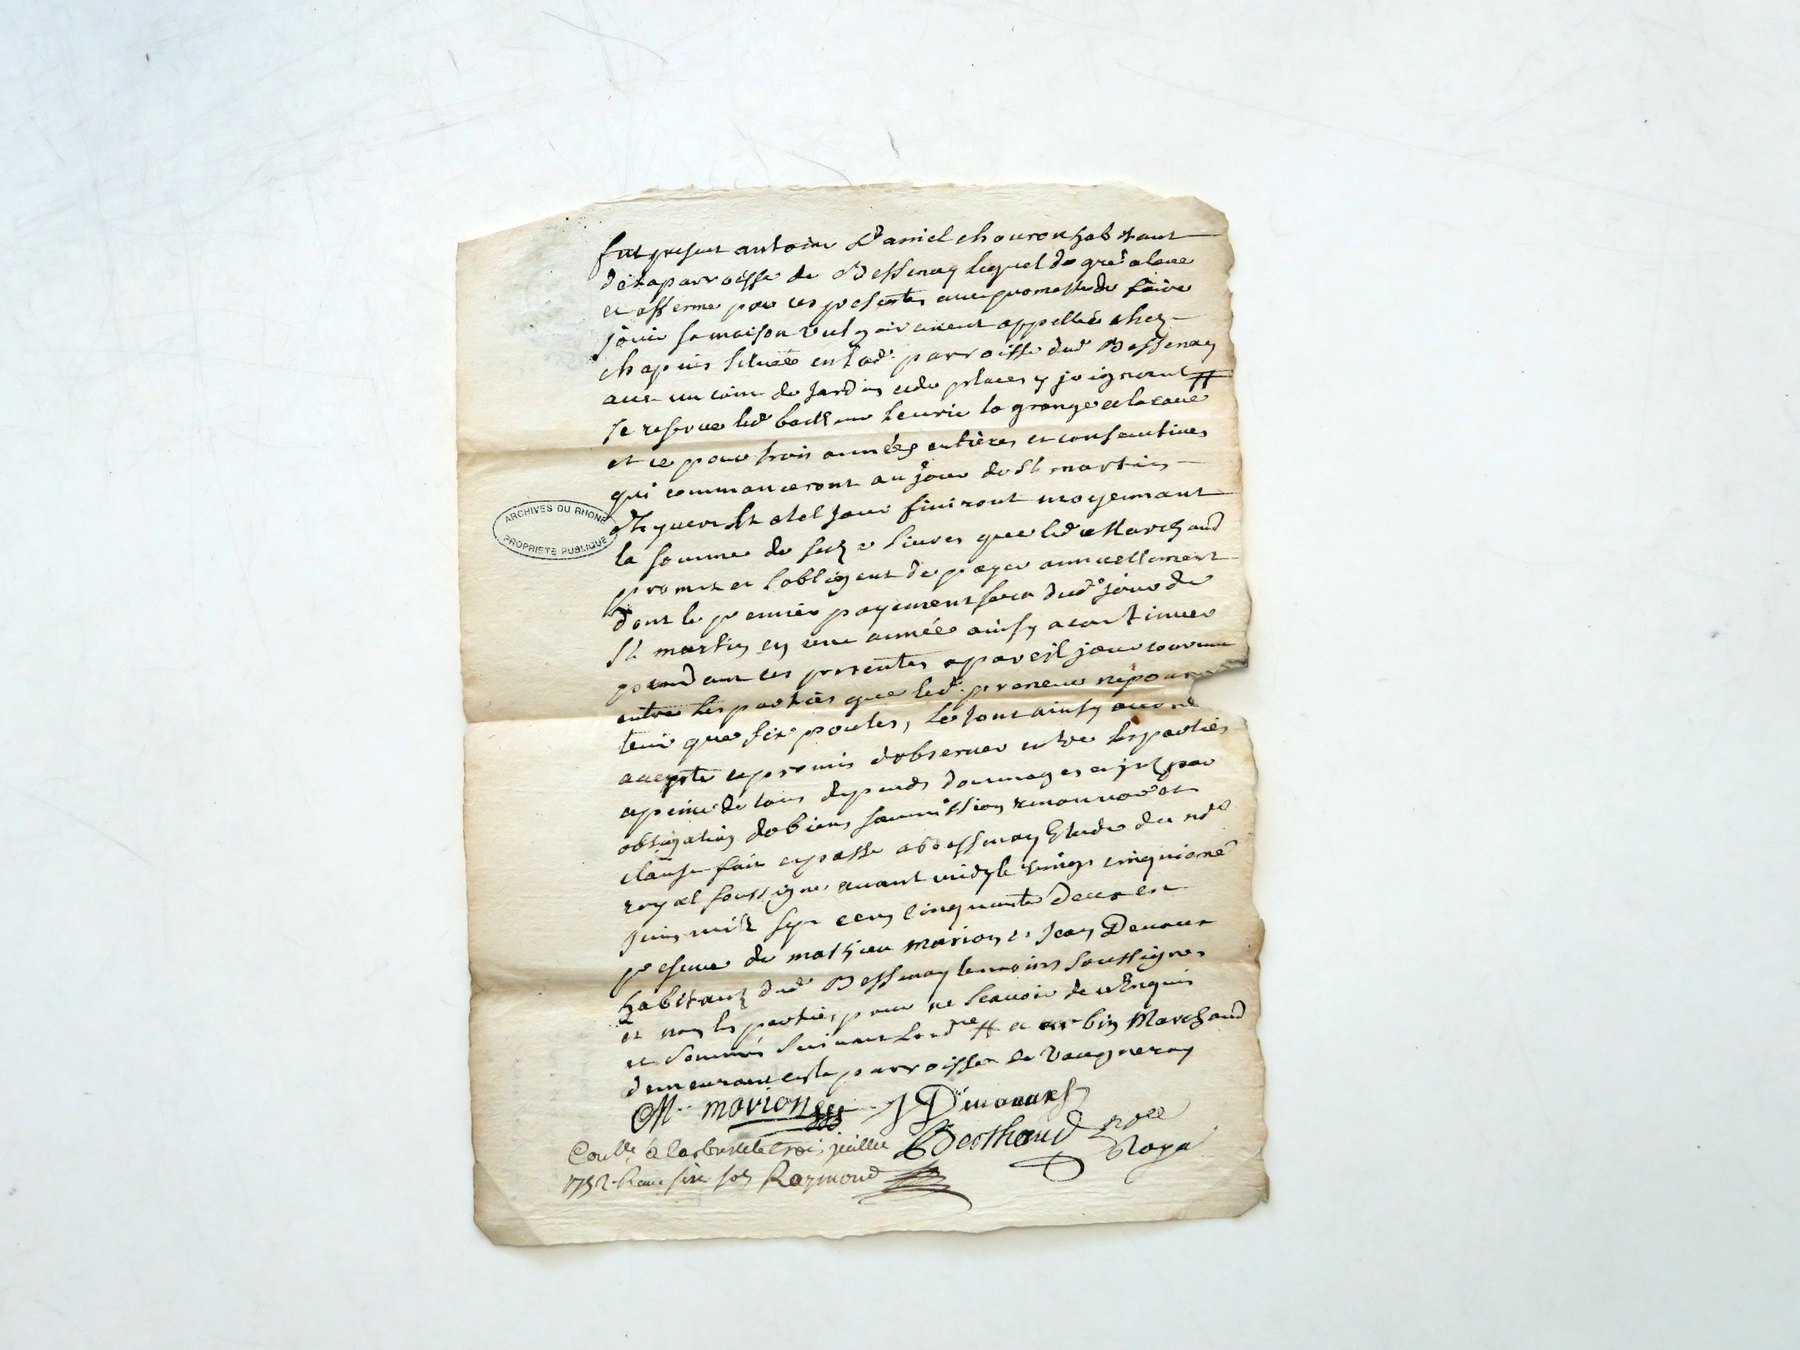 fut present antoine Daniel chouron habitant
de la parroisse de Bessenay lequel de gré a loue
et afferme par ces presentes avec promesse de faire
jouir sa maison vulgairement appellée chez
chapuis située en lad. parroisse dud Bessenay
avec un coin de jardin et de places y joignant #
se reserve led la grange et la cave
et ce pour trois années entières et consecutives
qui commanceront au jour de St martin
et a tel jour finiront moyennant
la somme de seize livres que led Marchand
promet et s'obligent de payer annuellement
dont le premier payement sera dud jour de
St martin en une année ainsy a continuer
pendant ces presentes a pareil jour convenu
entre les parties que led. preneur ne poura
tenir que six poules, le tout ainsy
accepté et promis d'observer entre les parties
a peine de tous depends dommages et intz par
obligation de biens soumission renonciaon et
clause fait et passé a Bessenay Etude du nore
royal soussigné avant midy le vingt cinquieme
juin mil sept cens cinquante Deux en
presence de mathieu marion et Jean Devaux
habitans dud Bessenay temoins soussignes
et non les parties pour ne scavoir de ce Enquis
et sommés suivant lordre # a Marchand
demeurant en la parroisse de Vaugneray
M. marion J Devaux
Berthaud nore
Roya
Conllé à le troi juillet
1752 Reçu six sols Raymond
ARCHIVES DU RHONE
PROPRIETE PUBLIQUE